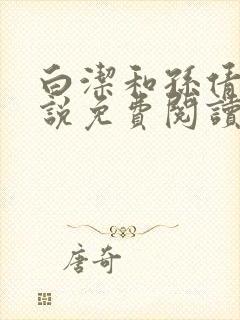 白潔和孫倩
說免費閱讀
唐奇